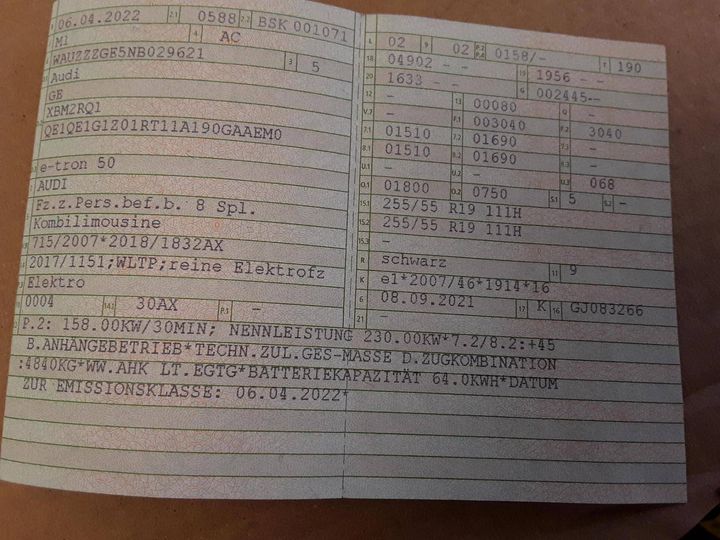 06.04.2022 2.1 0588 2.2 BSK 001071
M1 4 AC
WAUZZZGE5NB029621 3 5
Audi
GE
XBM2RQ1
QE1QE1G1Z01RT11A190GAAEM0
e-tron 50
AUDI
Fz.z.Pers.bef.b. 8 Spl.
Kombilimousine
715/2007*2018/1832AX
2017/1151;WLTP;reine Elektrofz
Elektro
0004 14.1 30AX P.1 –
L 02 9 02 P.2 P.4 0158/- T 190
18 04902 – – 19 1956 – –
20 1633 – – G 002445--
12 – 13 00080 Q –
V.7 – F.1 003040 F.2 3040
7.1 01510 7.2 01690 7.3 –
8.1 01510 8.2 01690 8.3 –
U.1 – U.2 – U.3 068
O.1 01800 O.2 0750 S.1 5 S.2 –
15.1 255/55 R19 111H
15.2 255/55 R19 111H
15.3 –
R schwarz 11 9
K e1*2007/46*1914*16
6 08.09.2021 17 K 16 GJ083266
21 –
P.2: 158.00KW/30MIN; NENNLEISTUNG 230.00KW*7.2/8.2:+45
B.ANHÄNGEBETRIEB*TECHN.ZUL.GES-MASSE D.ZUGKOMBINATION
:4840KG*WW.AHK LT.EGTG*BATTERIEKAPAZITÄT 64.0KWH*DATUM
ZUR EMISSIONSKLASSE: 06.04.2022*